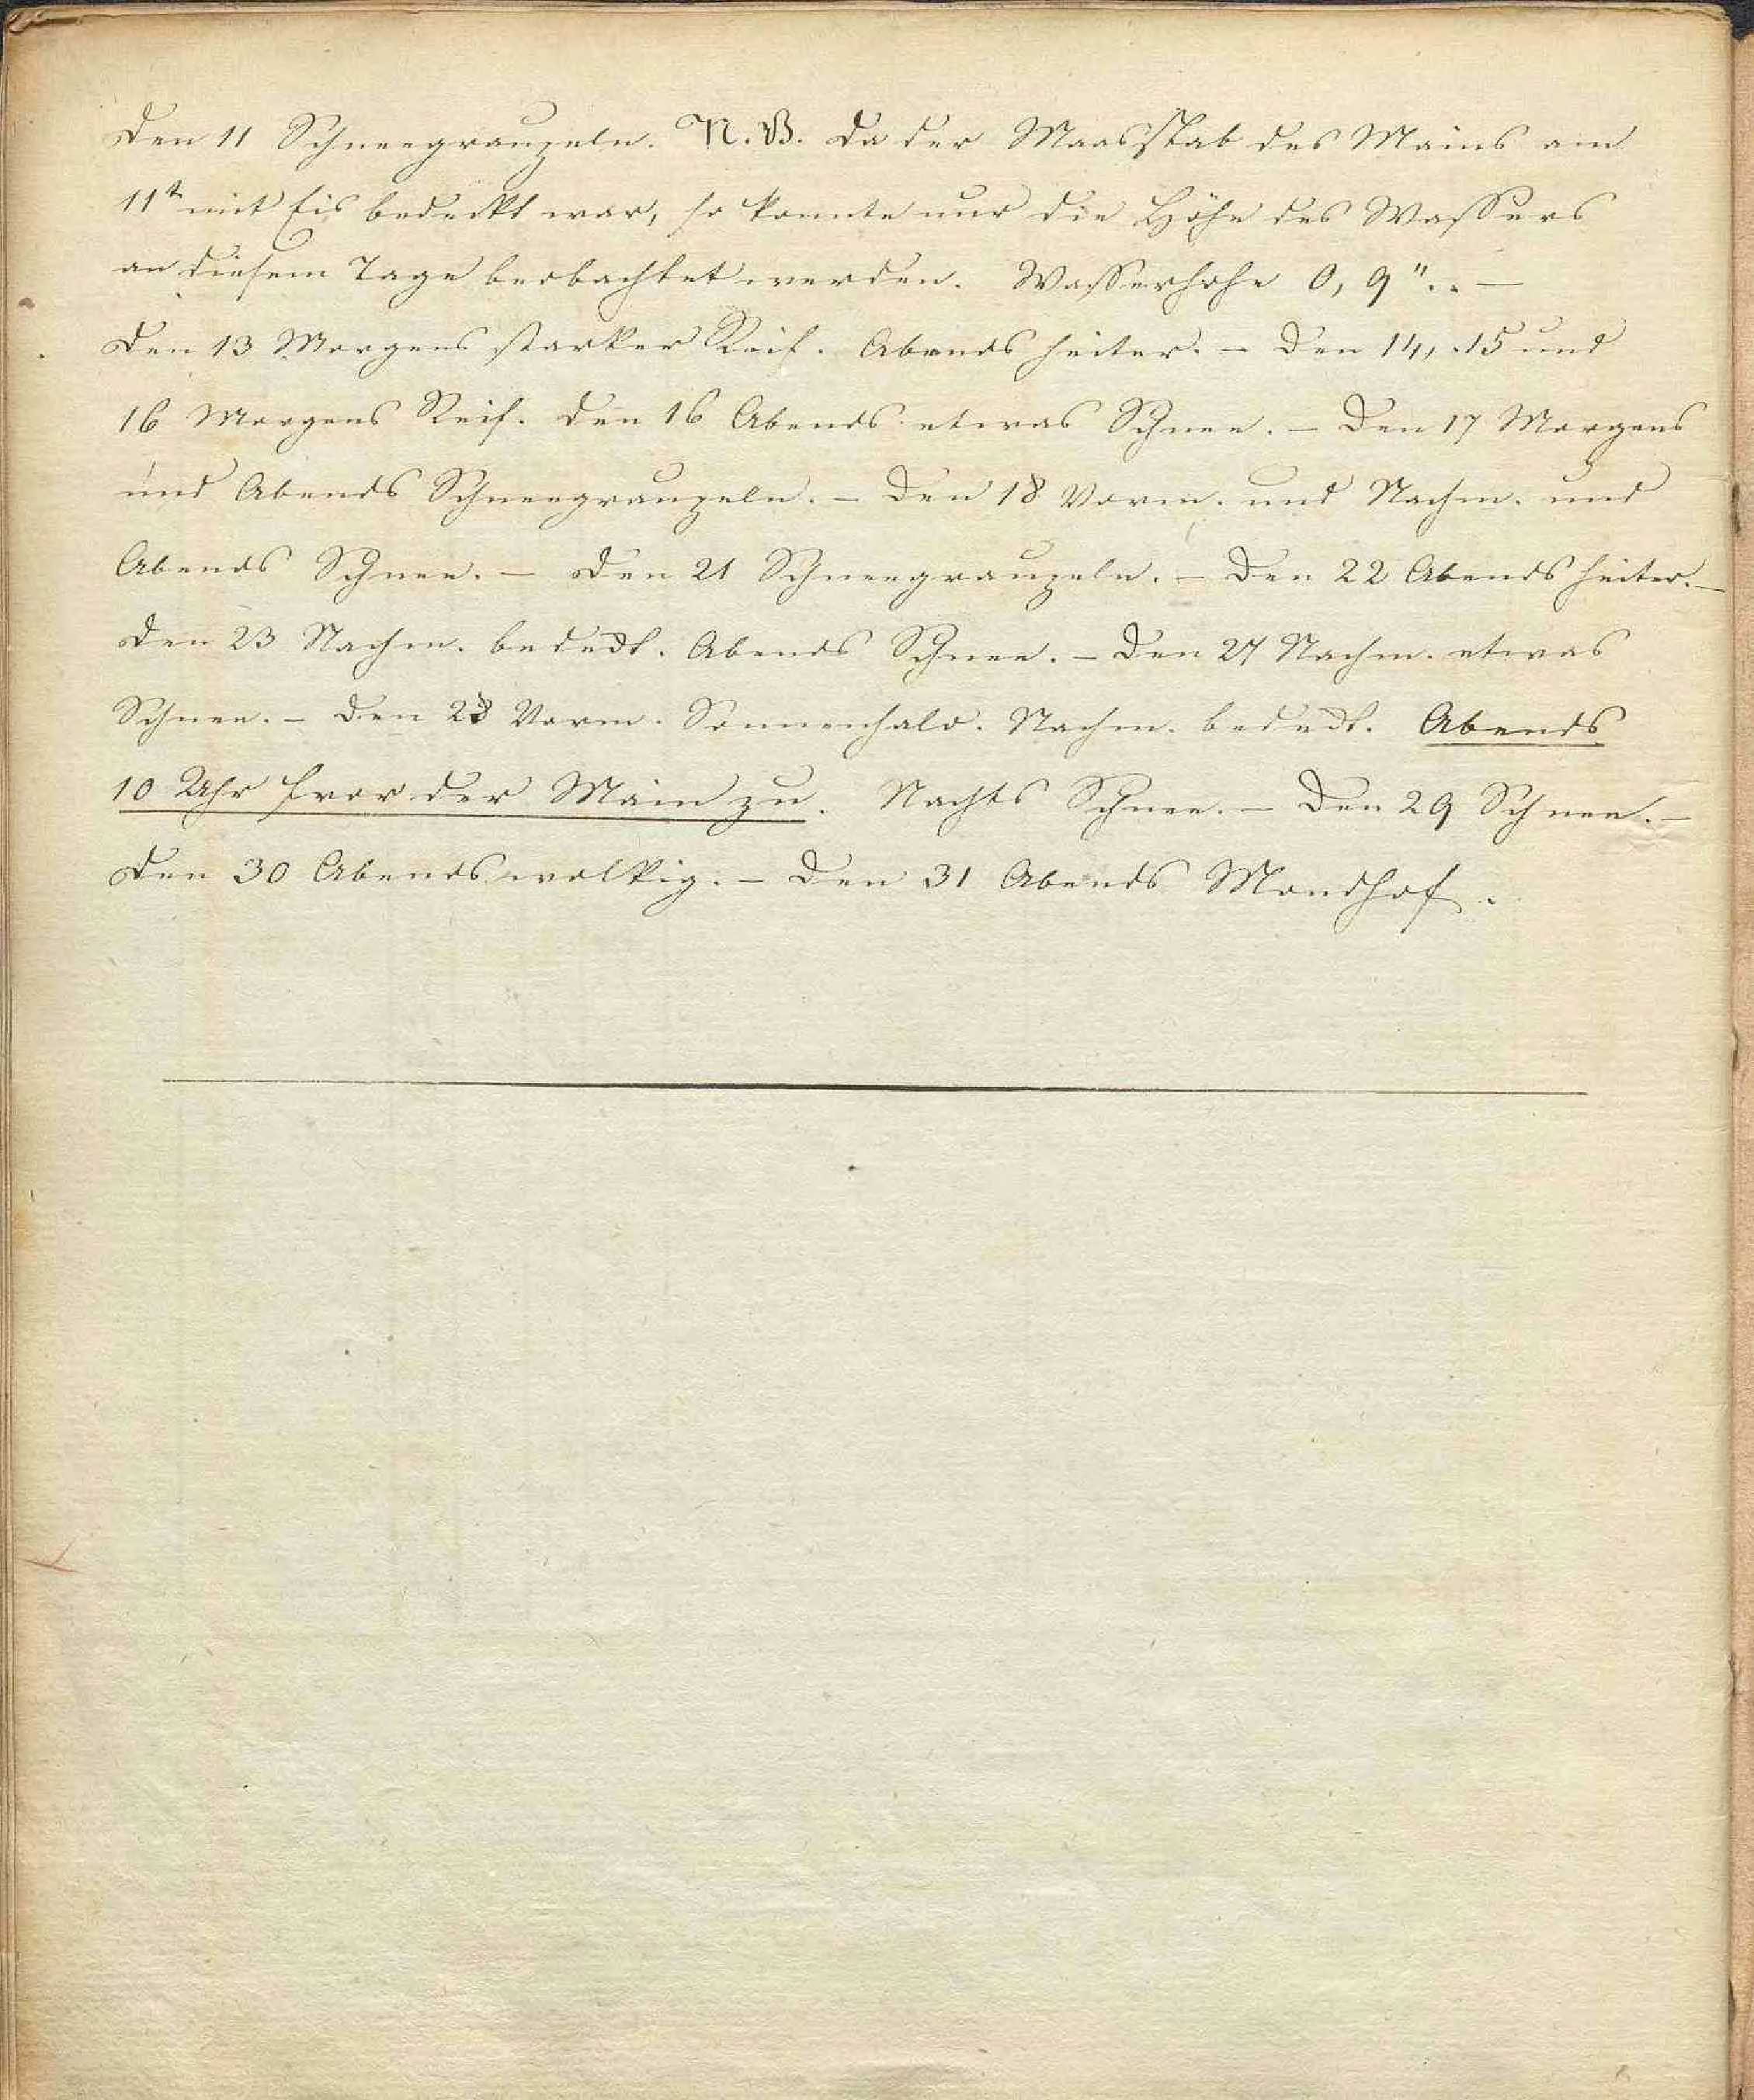 Den 11 Schneegraupeln. N.B. Da der Maasstab des Mains am
11t mit Eis bedeckt war, so konnte nur die Höhe des Wassers
an diesem Tage beobachtet werden. Wasserhöhe 0, 9".. —
Den 13 Morgens starker Reif. Abends heiter. – Den 14, 15 und
16 Morgens Reif. Den 16 Abends etwas Schnee. – Den 17 Morgens
und Abends Schneegraupeln. – Den 18 Vorm. und Nachm. und
Abends Schnee. – Den 21 Schneegraupeln. – Den 22 Abends heiter. –
Den 23 Nachm. bedeckt. Abends Schnee. – Den 27 Nachm. etwas
Schnee. – Den 28 Vorm. Sonnenhalo. Nachm. bedeckt. Abends
10 Uhr fror der Main zu. Nachts Schnee. – Den 29 Schnee. –
Den 30 Abends wolkig. – Den 31 Abends Mondhof.